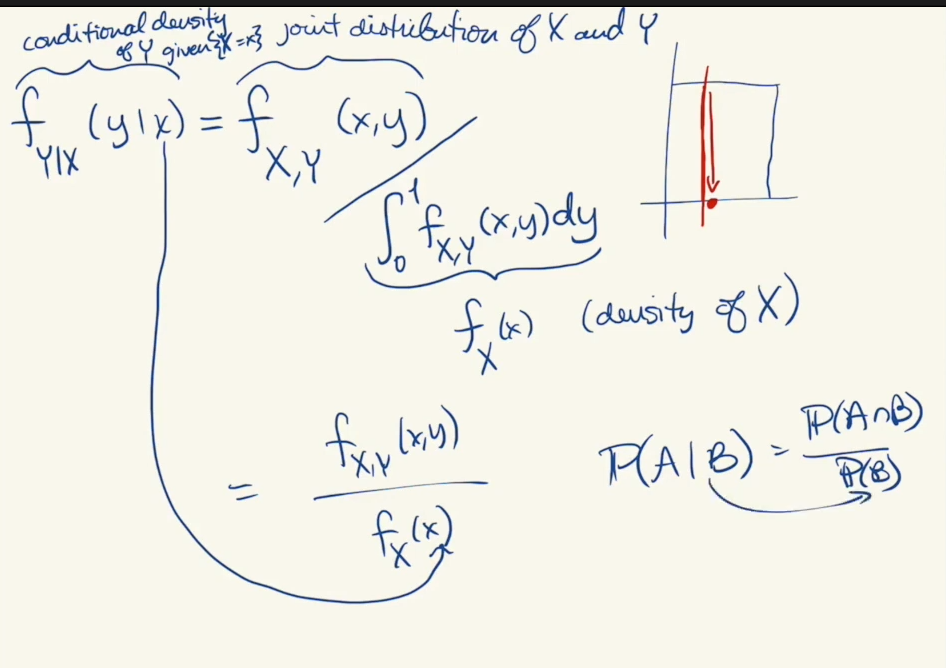 conditional density of Y given {X=x} joint distribution of X and Y
f_{Y|X}(y|x) = f_{X,Y}(x,y)
∫_0^1 f_{X,Y}(x,y)dy
f_X(x) (density of X)
= f_{X,Y}(x,y) / f_X(x)
P(A|B) = P(A∩B) / P(B)